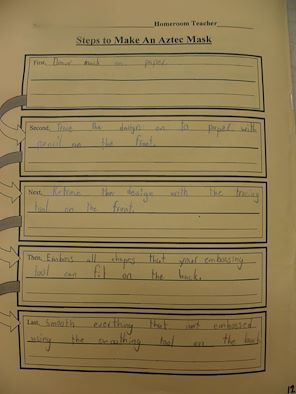 Homeroom Teacher
Steps to Make An Aztec Mask
First, Draw mask on paper
Second, Trace the design on to paper with
pencil on the front.
Next, Retrace the design with the tracing
tool on the front.
Then, Emboss all shapes that your embossing
tool can fit on the back.
Last, Smooth everything that isnt embossed
using the smoothing tool on the back
12